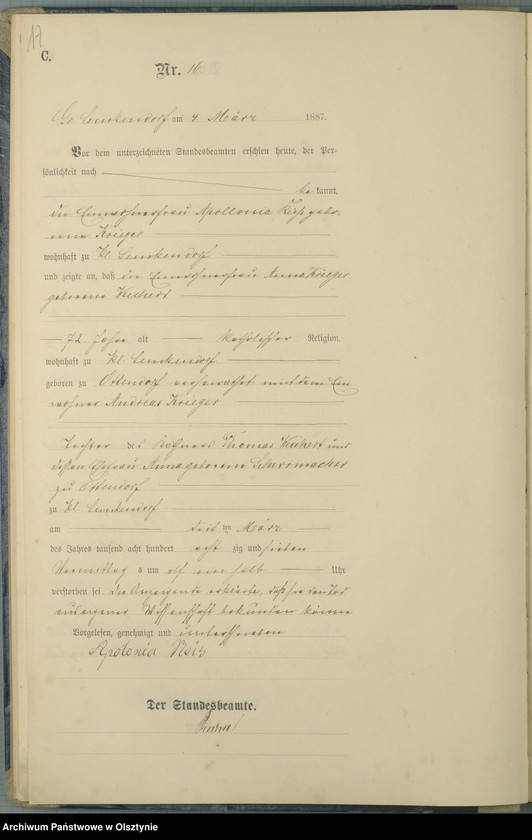 17
C.
Nr. 16
Gr. Lemkendorf am 4 März 1887.
Vor dem unterzeichneten Standesbeamten erschien heute, der Per-
sönlichkeit nach
be kannt,
die Einwohnerfrau Apollonia gebo-
rene Krieger
wohnhaft zu Kl. Lemkendorf
und zeigte an, daß die Einwohnerfrau Anna Krieger
geborene
72 Jahre alt katholischer Religion,
wohnhaft zu Kl. Lemkendorf
geboren zu Ottendorf verheirathet mit dem Ein
wohner Andreas Krieger
Tochter des Thomas und
dessen Ehefrau Anna geborene
zu Ottendorf
zu Kl. Lemkendorf
am ten März
des Jahres tausend acht hundert acht zig und sieben
Vormittag s um elf ein halb Uhr
verstorben sei. Die Anzeigende erklärte, daß sie den Tod
aus eigener Wissenschaft bekunden könne
Vorgelesen, genehmigt und unterschrieben
Der Standesbeamte.
Archiwum Państwowe w Olsztynie